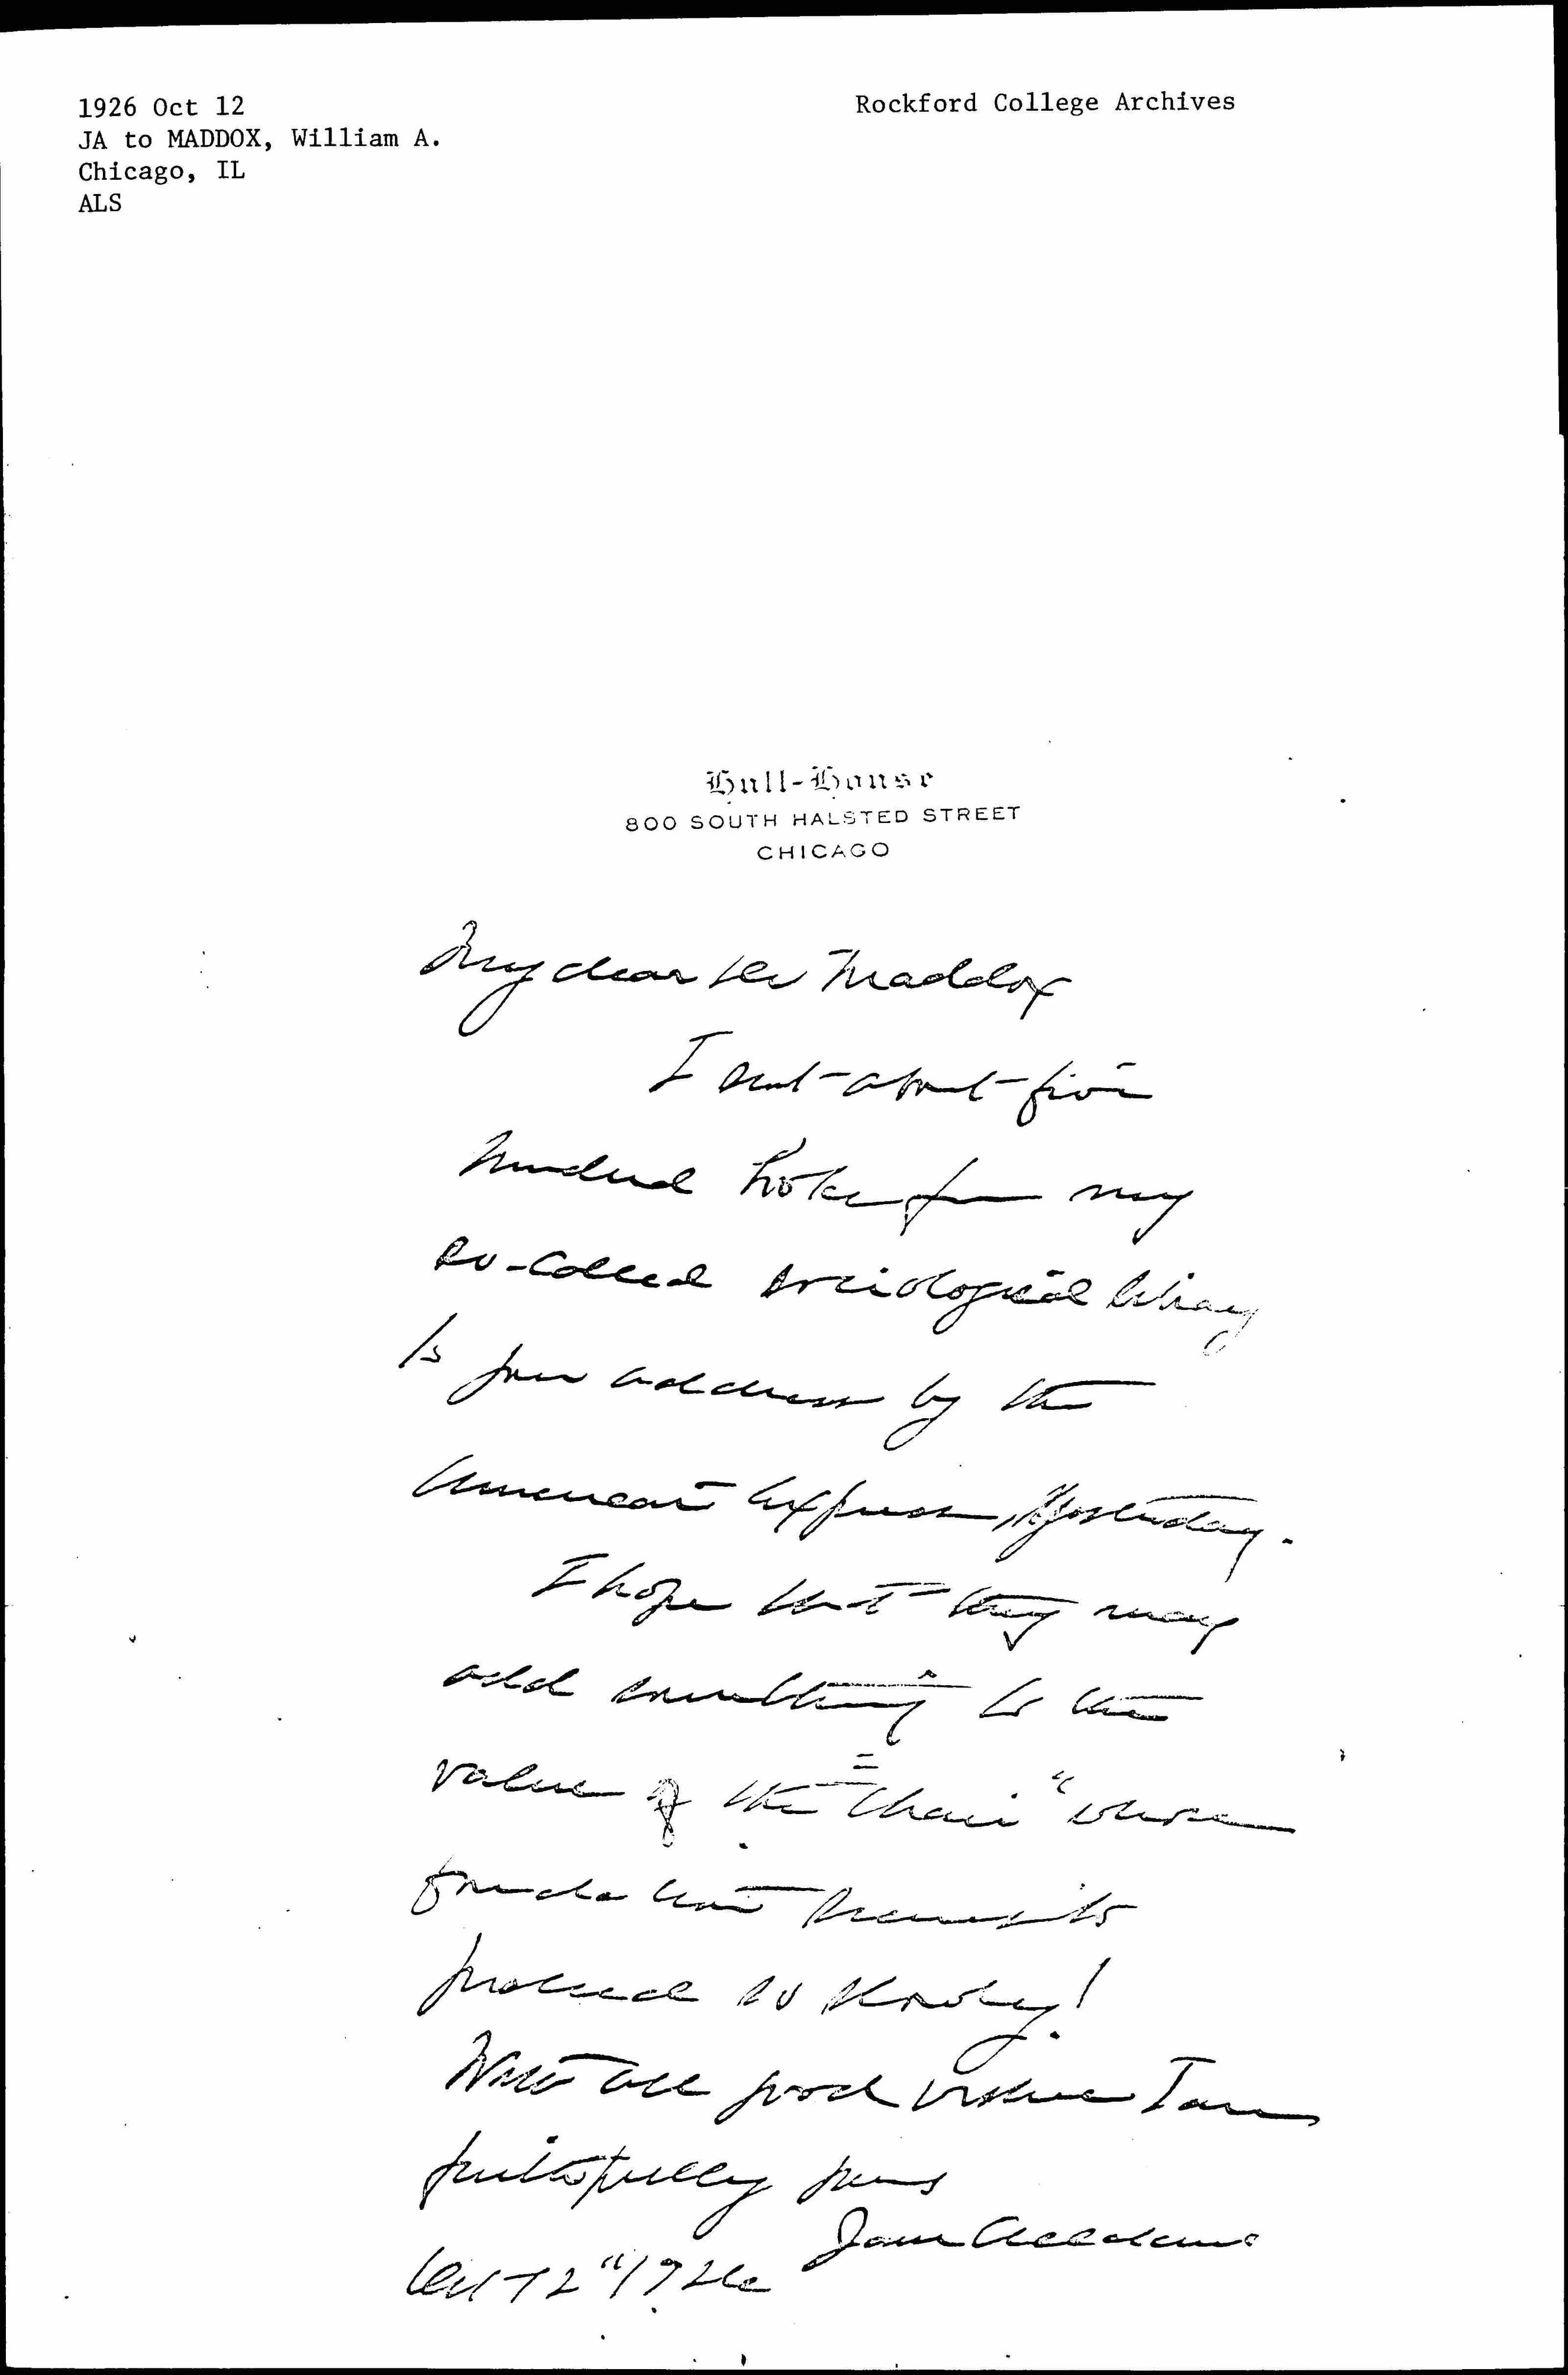 1926 Oct 12
JA to MADDOX, William A.
Chicago, IL
ALS
Rockford College Archives
Hull-House
800 SOUTH HALSTED STREET
CHICAGO
My dear Dr Maddox
I sent about five
hundred books from my
so-called sociological library
to your address by the
American Express, yesterday.
I hope that they may
add something to the
value of the "Chair" whose
foundation seems to
proceed so slowly!
With all good wishes I am
faithfully yours
Jane Addams
Oct 12" 1926